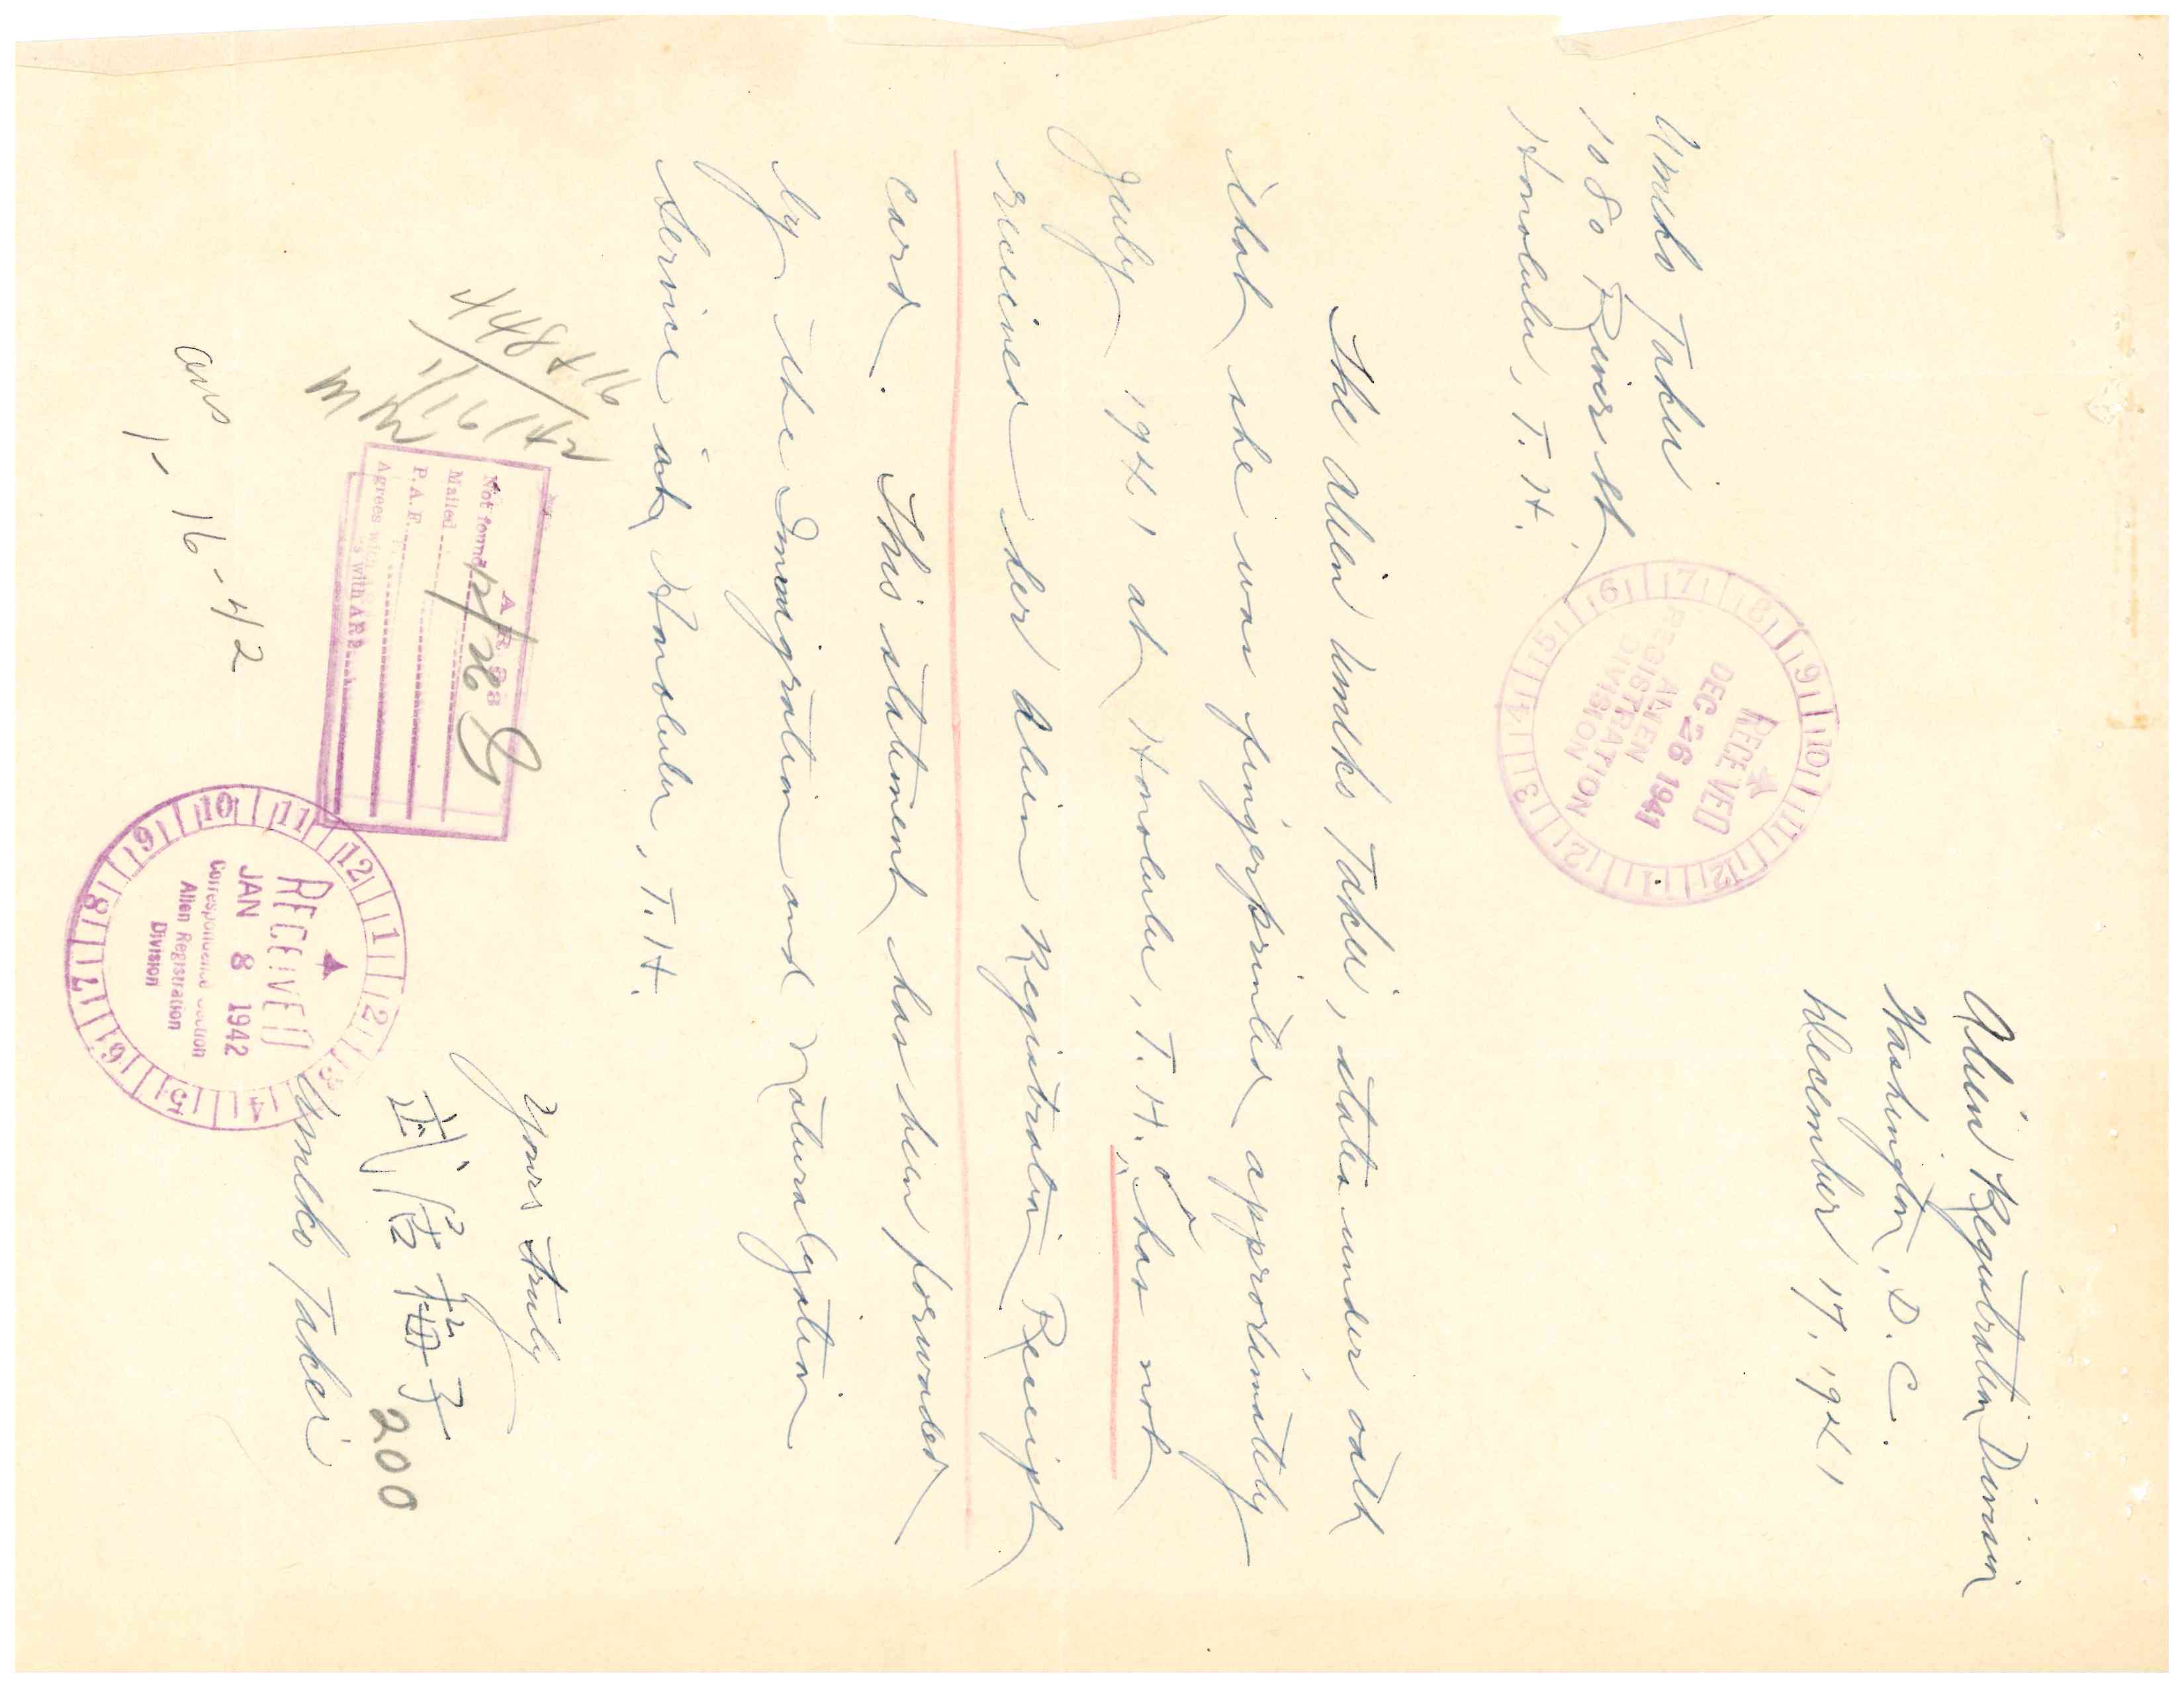 Alien Registration Division
Washington, D. C.
December 17, 1941
RECEIVED
DEC 26 1941
ALIEN
REGISTRATION
DIVISION
Umeko Takei
1080 River St.
Honolulu, T. H.
The alien Umeko Takei, states under oath
that she was fingerprinted approximately
July 1941 at Honolulu, T. H. & has not
received her Alien Registration Receipt
card. This statement has been forwaded
by the Immigration and Naturalyation
Service at Honolulu, T. H.
44816
1/16/42
Yours truly
武居梅子
200
Umeko Takei
AR 33
Not found 12/26 G
Mailed
P. A. F.
Agrees with AR
s with AR 2
RECEIVED
JAN 8 1942
Correspondence Section
Alien Registration
Division
ans
1-16-42